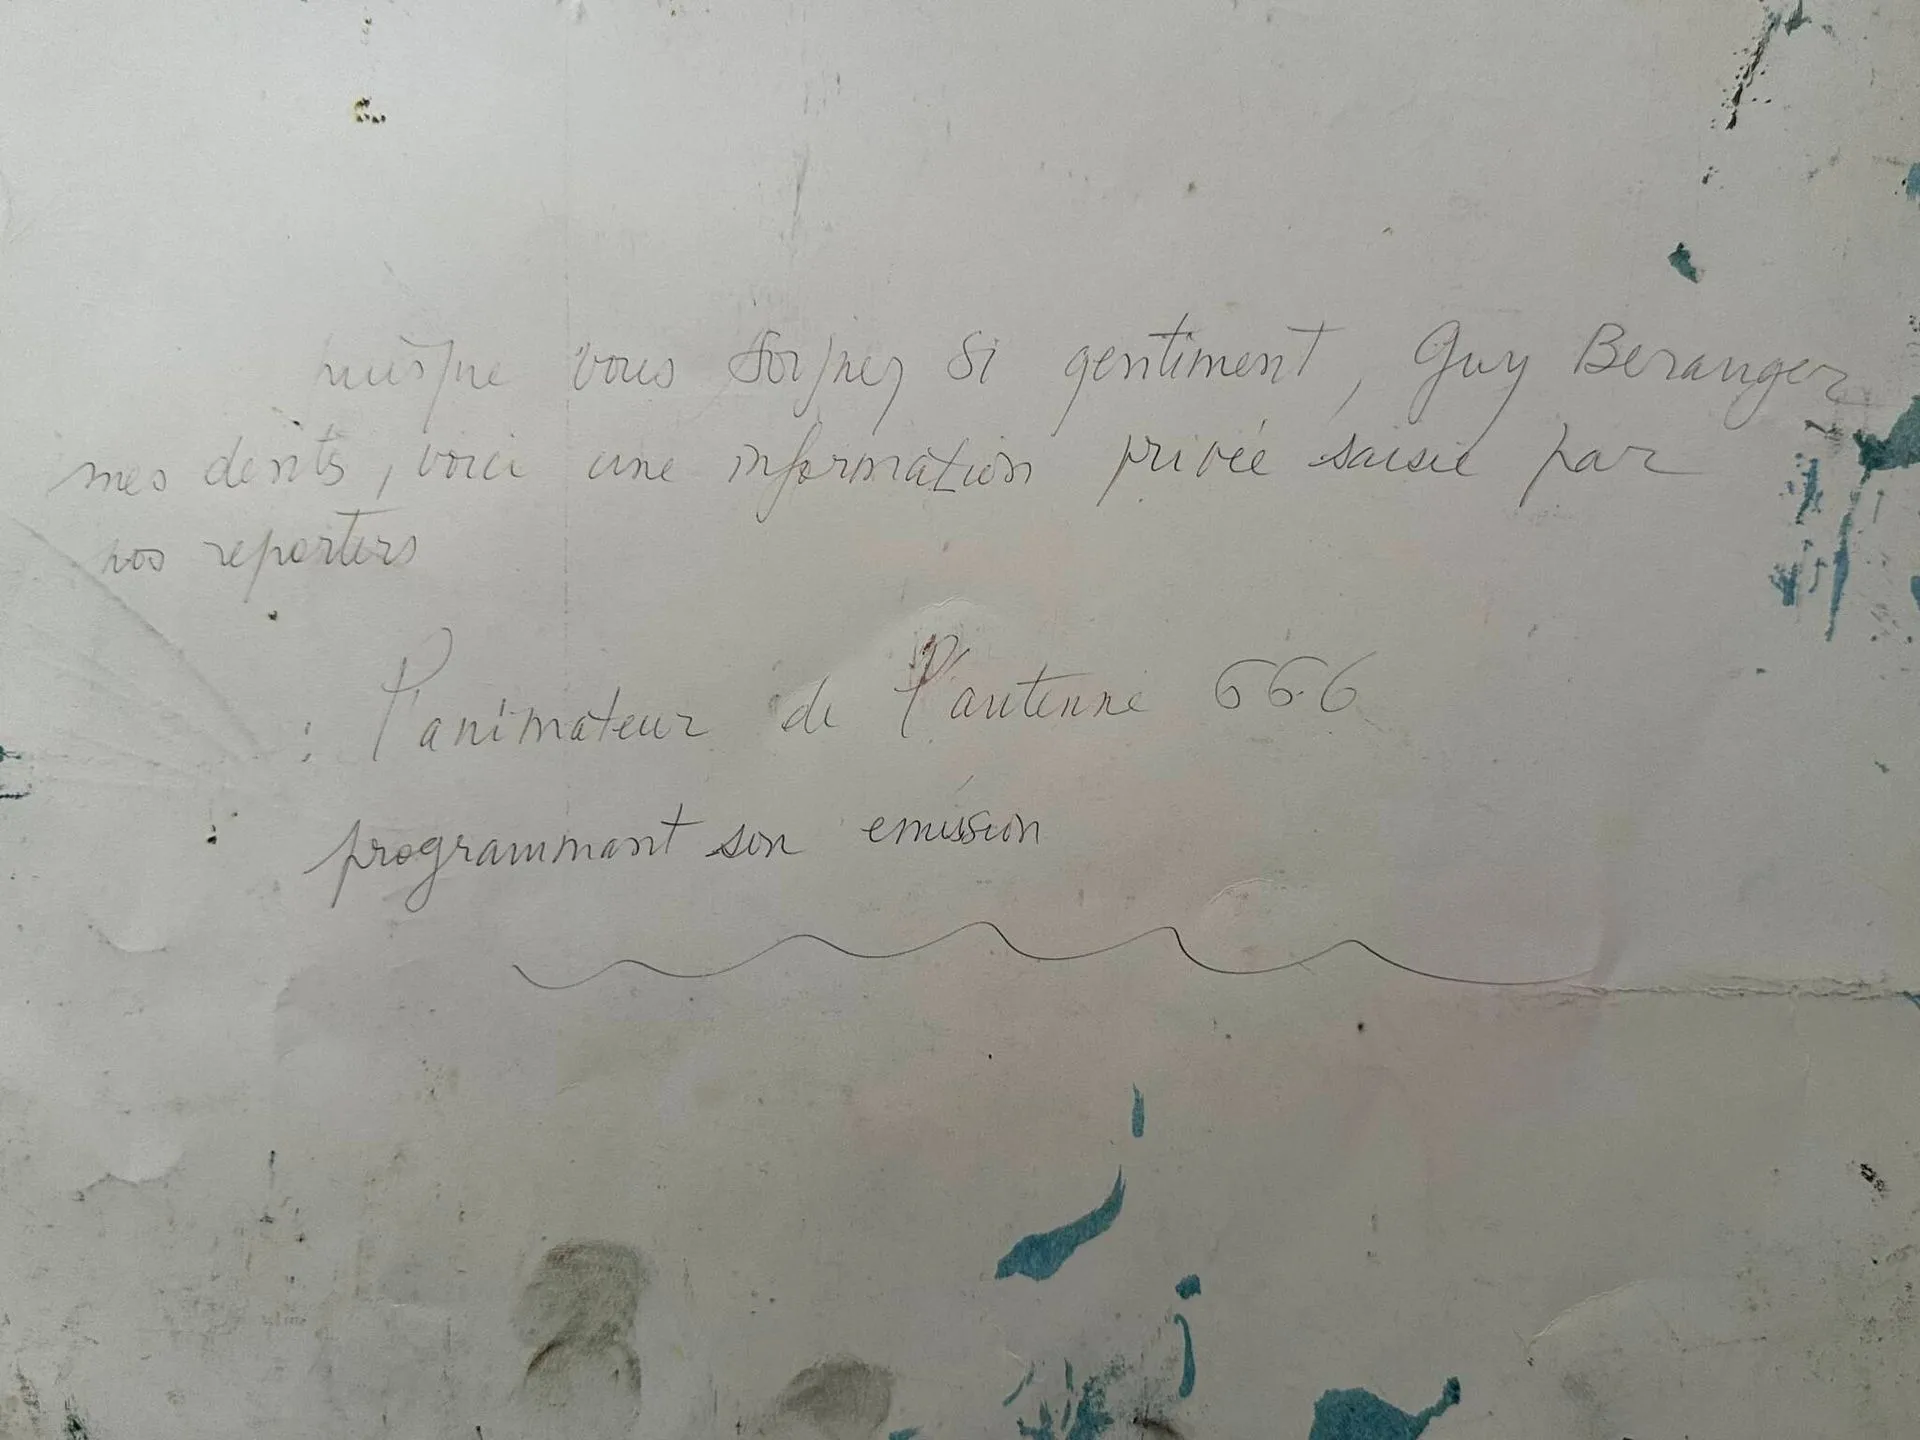 puisque vous soignez si gentiment, Guy Beranger
mes dents, voici une information privée saisie par
nos reporters
: l'animateur de l'antenne 666
programmant son émission